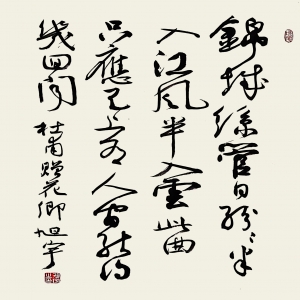 錦城絲管日紛〻半
入江風半入雲此曲
只應天上有人間能得
幾回聞 杜甫贈花卿 旭宇